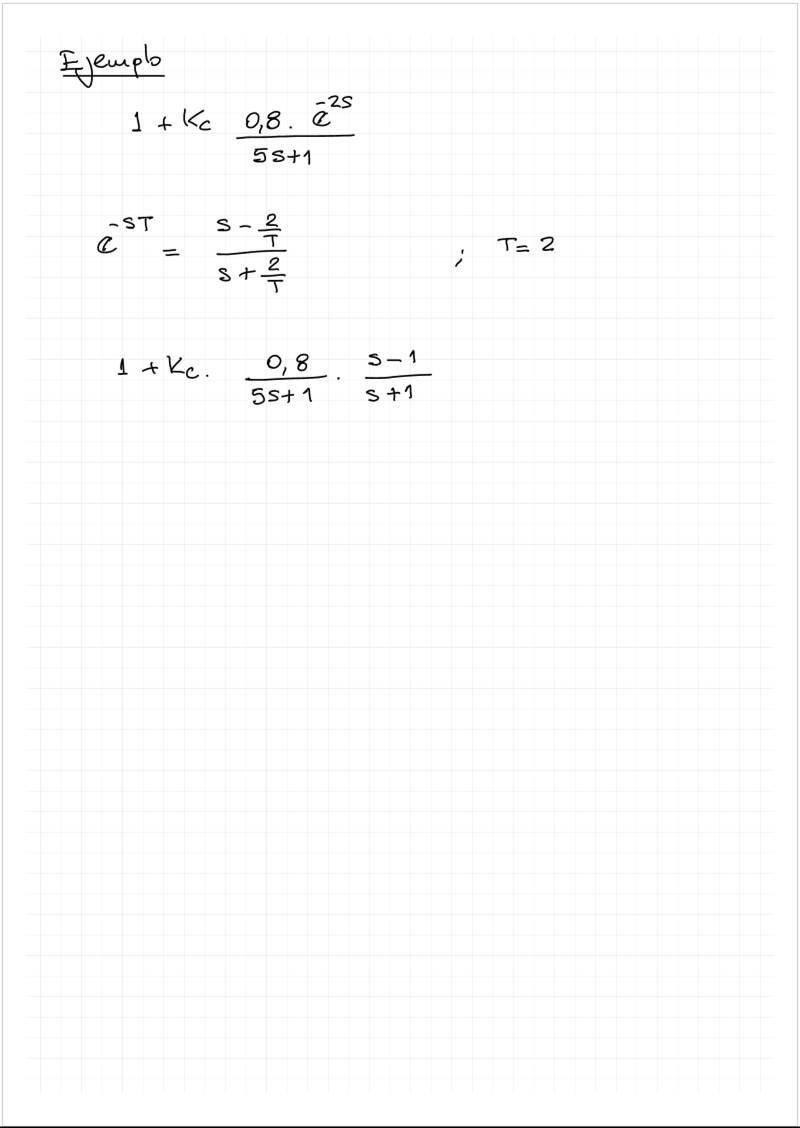 Ejemplo
1 + Kc (0,8 · e^(-2s))/(5s+1)
e^(-sT) = (s - 2/T)/(s + 2/T) ; T = 2
1 + Kc · (0,8)/(5s+1) · (s-1)/(s+1)